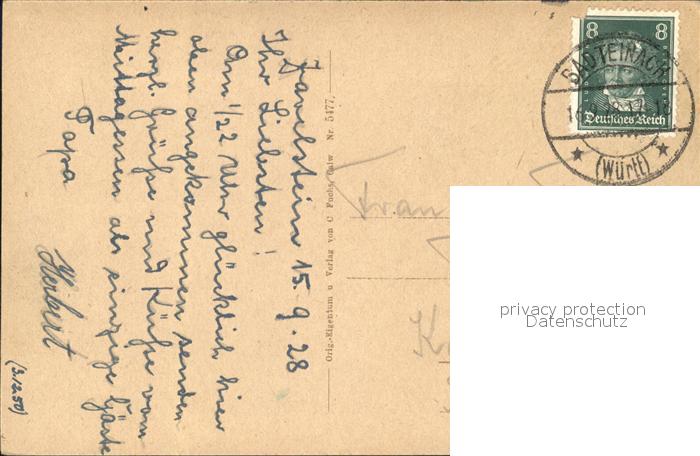 Zavelstein 15.9.28
Ihr Liebsten!
Um 1/22 Uhr glücklich hier
oben angekommen senden
herzl. Grüße und Küße vom
Mittagessen als einzige Gäste
Papa
Herbert
(3.12.50)
Orig.-Eigentum u Verlag von C Fuchs, Calw Nr. 5477.
Frau
8 8
Deutsches Reich
BAD TEINACH
(Württ)
privacy protection
Datenschutz